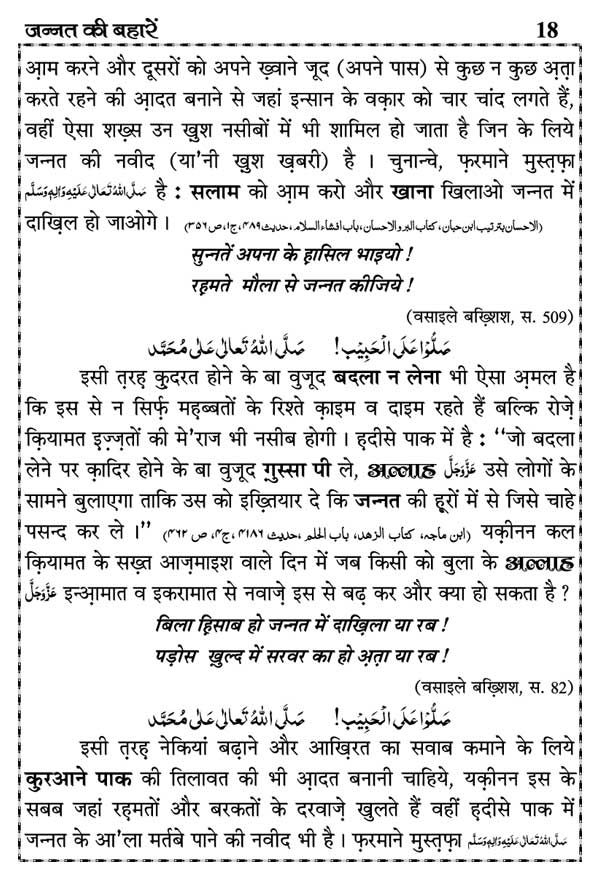 जन्नत की बहारें 18
आ़म करने और दूसरों को अपने ख़्वाने जूद (अपने पास) से कुछ न कुछ अ़त़ा
करते रहने की आ़दत बनाने से जहां इन्सान के वक़ार को चार चांद लगते हैं,
वहीं ऐसा शख़्स उन ख़ुश नसीबों में भी शामिल हो जाता है जिन के लिये
जन्नत की नवीद (या'नी ख़ुश ख़बरी) है । चुनान्चे, फ़रमाने मुस्त़फ़ा
صَلَّى اللهُ تَعَالٰى عَلَيْهِ وَاٰلِهٖ وَسَلَّم है : सलाम को आ़म करो और खाना खिलाओ जन्नत में
दाख़िल हो जाओगे । (الاحسان بترتیب ابن حبان، کتاب البر والاحسان، باب افشاء السلام، حدیث۴۸۹،ج۱،ص۳۵۶)
सुन्नतें अपना के ह़ासिल भाइयो !
रह़मते मौला से जन्नत कीजिये !
(वसाइले बख़्शिश, स. 509)
صَلُّوْا عَلَى الْحَبِيْب! صَلَّى اللهُ تَعَالٰى عَلٰى مُحَمَّد
इसी त़रह़ क़ुदरत होने के बा वुजूद बदला न लेना भी ऐसा अ़मल है
कि इस से न सिर्फ़ मह़ब्बतों के रिश्ते क़ाइम व दाइम रहते हैं बल्कि रोज़े
क़ियामत इ़ज़्ज़तों की मे'राज भी नसीब होगी । ह़दीसे पाक में है : ‘‘जो बदला
लेने पर क़ादिर होने के बा वुजूद ग़ुस्सा पी ले, अल्लाह عَزَّوَجَلَّ उसे लोगों के
सामने बुलाएगा ताकि उस को इख़्तियार दे कि जन्नत की हूरों में से जिसे चाहे
पसन्द कर ले ।’’ (ابن ماجه، کتاب الزهد، باب الحلم ،حدیث ۴۱۸۶ ،ج۴، ص ۴۶۲) यक़ीनन कल
क़ियामत के सख़्त आज़माइश वाले दिन में जब किसी को बुला के अल्लाह
عَزَّوَجَلَّ इन्आ़मात व इकरामात से नवाज़े इस से बढ़ कर और क्या हो सकता है ?
बिला ह़िसाब हो जन्नत में दाख़िला या रब !
पड़ोस ख़ुल्द में सरवर का हो अ़त़ा या रब !
(वसाइले बख़्शिश, स. 82)
صَلُّوْا عَلَى الْحَبِيْب! صَلَّى اللهُ تَعَالٰى عَلٰى مُحَمَّد
इसी त़रह़ नेकियां बढ़ाने और आख़िरत का सवाब कमाने के लिये
क़ुरआने पाक की तिलावत की भी आ़दत बनानी चाहिये, यक़ीनन इस के
सबब जहां रह़मतों और बरकतों के दरवाज़े खुलते हैं वहीं ह़दीसे पाक में
जन्नत के आ'ला मर्तबे पाने की नवीद भी है । फ़रमाने मुस्त़फ़ा صَلَّى اللهُ تَعَالٰى عَلَيْهِ وَاٰلِهٖ وَسَلَّم